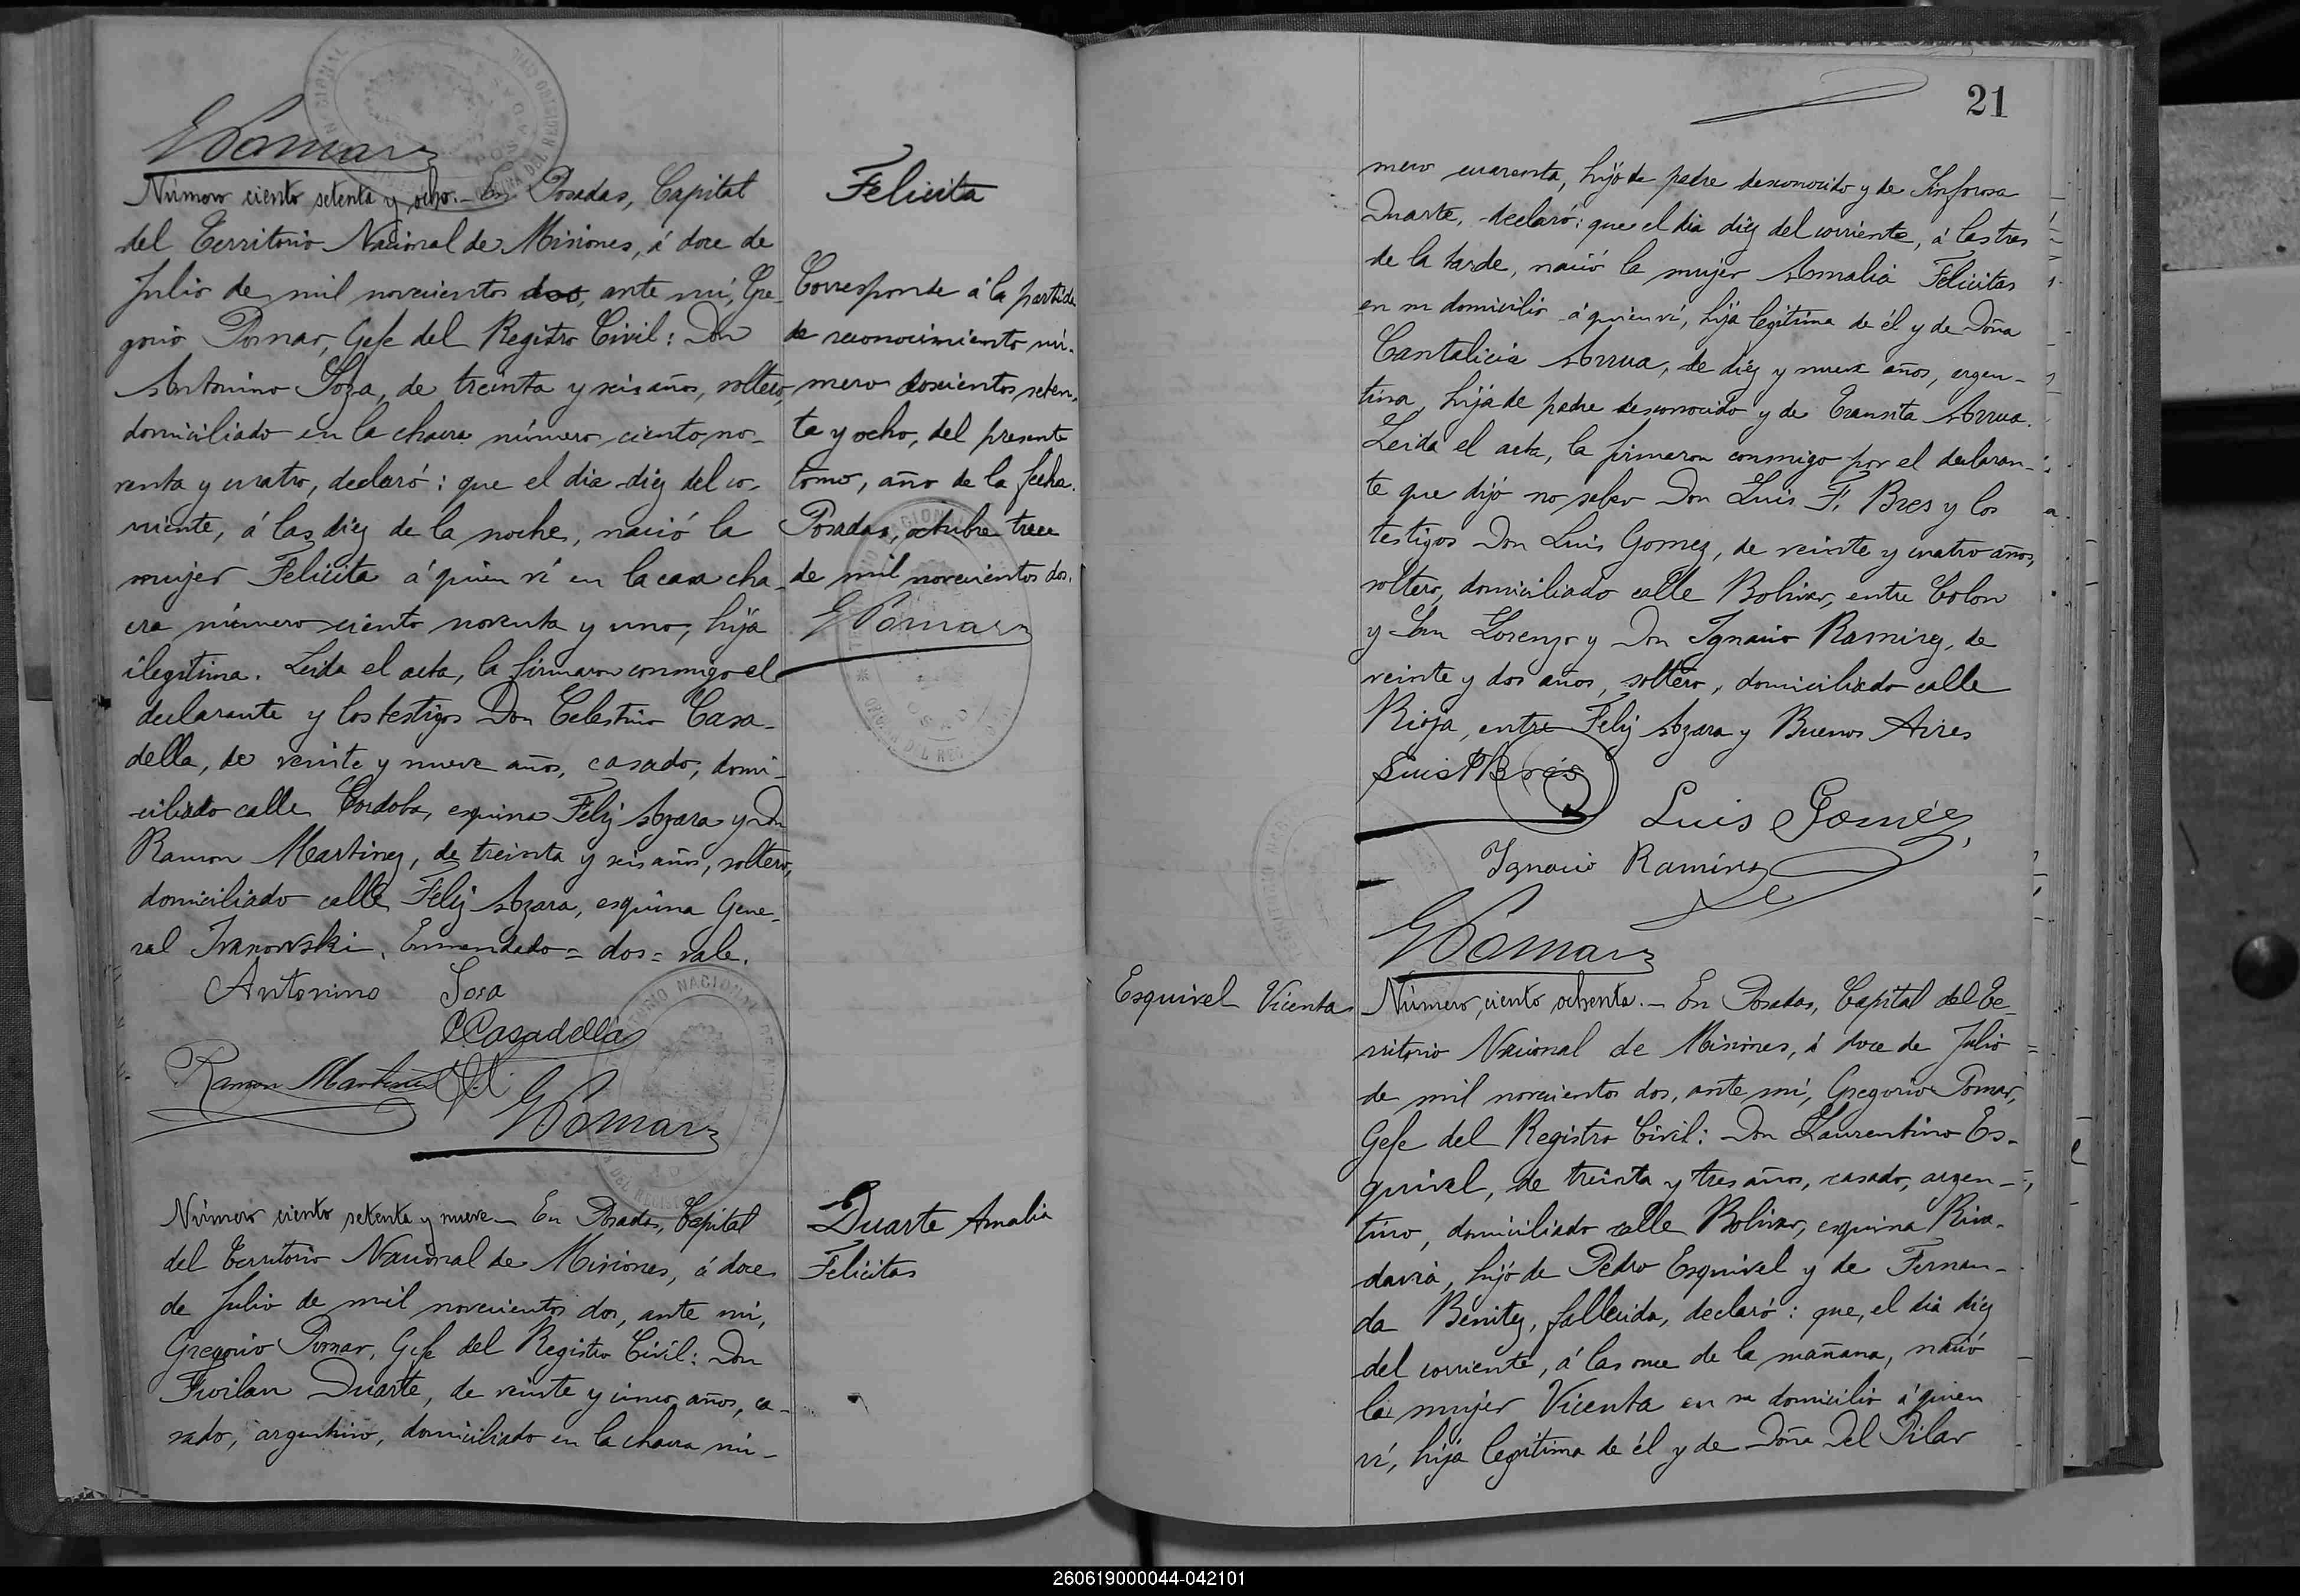 GPomar
Número ciento setenta y ocho.- En Posadas, Capital
del Territorio Nacional de Misiones, á doce de
Julio de mil novecientos dos, ante mí, Gre-
gorio Pomar, Gefe del Registro Civil: Don
Antonino Soza, de treinta y seis años, soltero,
domiciliado en la chacra número ciento no-
venta y cuatro, declaró: que el dia diez del co-
rriente, á las diez de la noche, nació la
mujer Felicita á quien ví en la casa cha-
cra número ciento noventa y uno, hija
ilegítima. Leida el acta, la firmaron conmigo el
declarante y los testigos Don Celestino Casa-
della, de veinte y nueve años, casado, domi-
ciliado calle Cordoba, esquina Feliz Azara y Don
Ramon Martinez, de treinta y seis años, soltero,
domiciliado calle Feliz Azara, esquina Gene-
ral Ivanowski. Enmendado = dos = vale.
Antonino Sosa
CCasadella
Ramon Martinez
GPomar
Felicita
Corresponde á la partida
de reconocimiento nú-
mero doscientos seten-
ta y ocho, del presente
tomo, año de la fecha.
Posadas, octubre trece
de mil novecientos dos.
GPomar
Número ciento setenta y nueve.- En Posadas, Capital
del Territorio Nacional de Misiones, á doce
de Julio de mil novecientos dos, ante mí,
Gregorio Pomar, Gefe del Registro Civil: Don
Froilan Duarte, de veinte y cinco años, ca-
sado, argentino, domiciliado en la chacra nú-
Duarte Amalia
Felicitas
21
mero cuarenta, hijo de padre desconocido y de Sinforosa
Duarte, declaró: que el dia diez del corriente, á las tres
de la tarde, nació la mujer Amalia Felicitas
en su domicilio á quien ví, hija legítima de él y de Doña
Cantalicia Arrua, de diez y nueve años, argen-
tina, hija de padre desconocido y de Transita Arrua.
Leida el acta, la firmaron conmigo por el declaran-
te que dijó no saber Don Luis F. Bres y los
testigos Don Luis Gomez, de veinte y cuatro años,
soltero, domiciliado calle Bolivar, entre Colon
y San Lorenzo y Don Ignacio Ramirez, de
veinte y dos años, soltero, domiciliado calle
Rioja, entre Feliz Azara y Buenos Aires
Luis F Bres
Luis Goméz
Ignacio Ramírez
GPomar
Esquivel Vicenta
Número ciento ochenta.- En Posadas, Capital del Te-
rritorio Nacional de Misiones, á doce de Julio
de mil novecientos dos, ante mí, Gregorio Pomar,
Gefe del Registro Civil: Don Laurentino Es-
quivel, de treinta y tres años, casado, argen-
tino, domiciliado calle Bolivar, esquina Riva-
davia, hijo de Pedro Esquivel y de Fernan-
da Benitez, fallecida, declaró: que, el dia diez
del corriente, á las once de la mañana, nació
la mujer Vicenta en su domicilio á quien
ví, hija legítima de él y de Doña Del Pilar
260619000044-042101